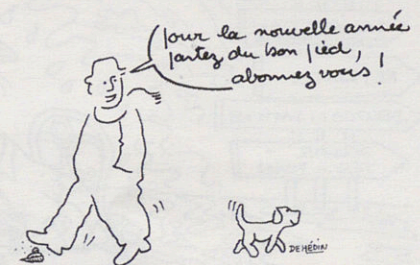 Pour la nouvelle année
partez du bon pied,
abonnez vous !
DEHÉDIN